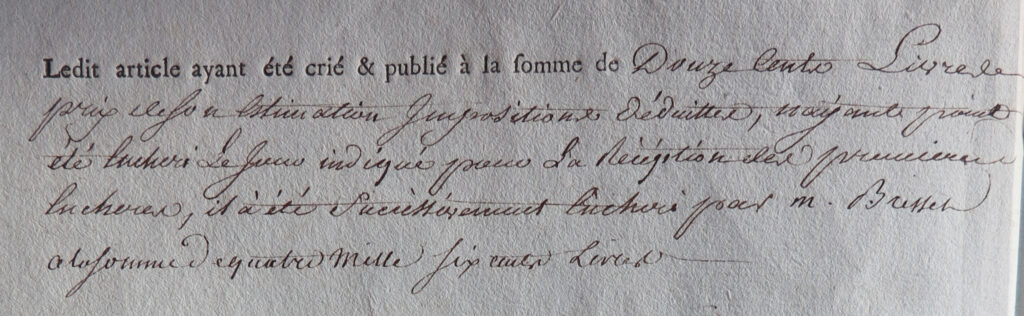 Ledit article ayant été crié & publié à la somme de Douze Cents Livres
prix de son Estimation Impositions déduittes, n'ayante point
été Encheri Le Jour indiqué pour La Réception des premieres
Encheres, il à été Successivement Encheri par m. Bresset
a la somme de quatre Mille six cents Livres